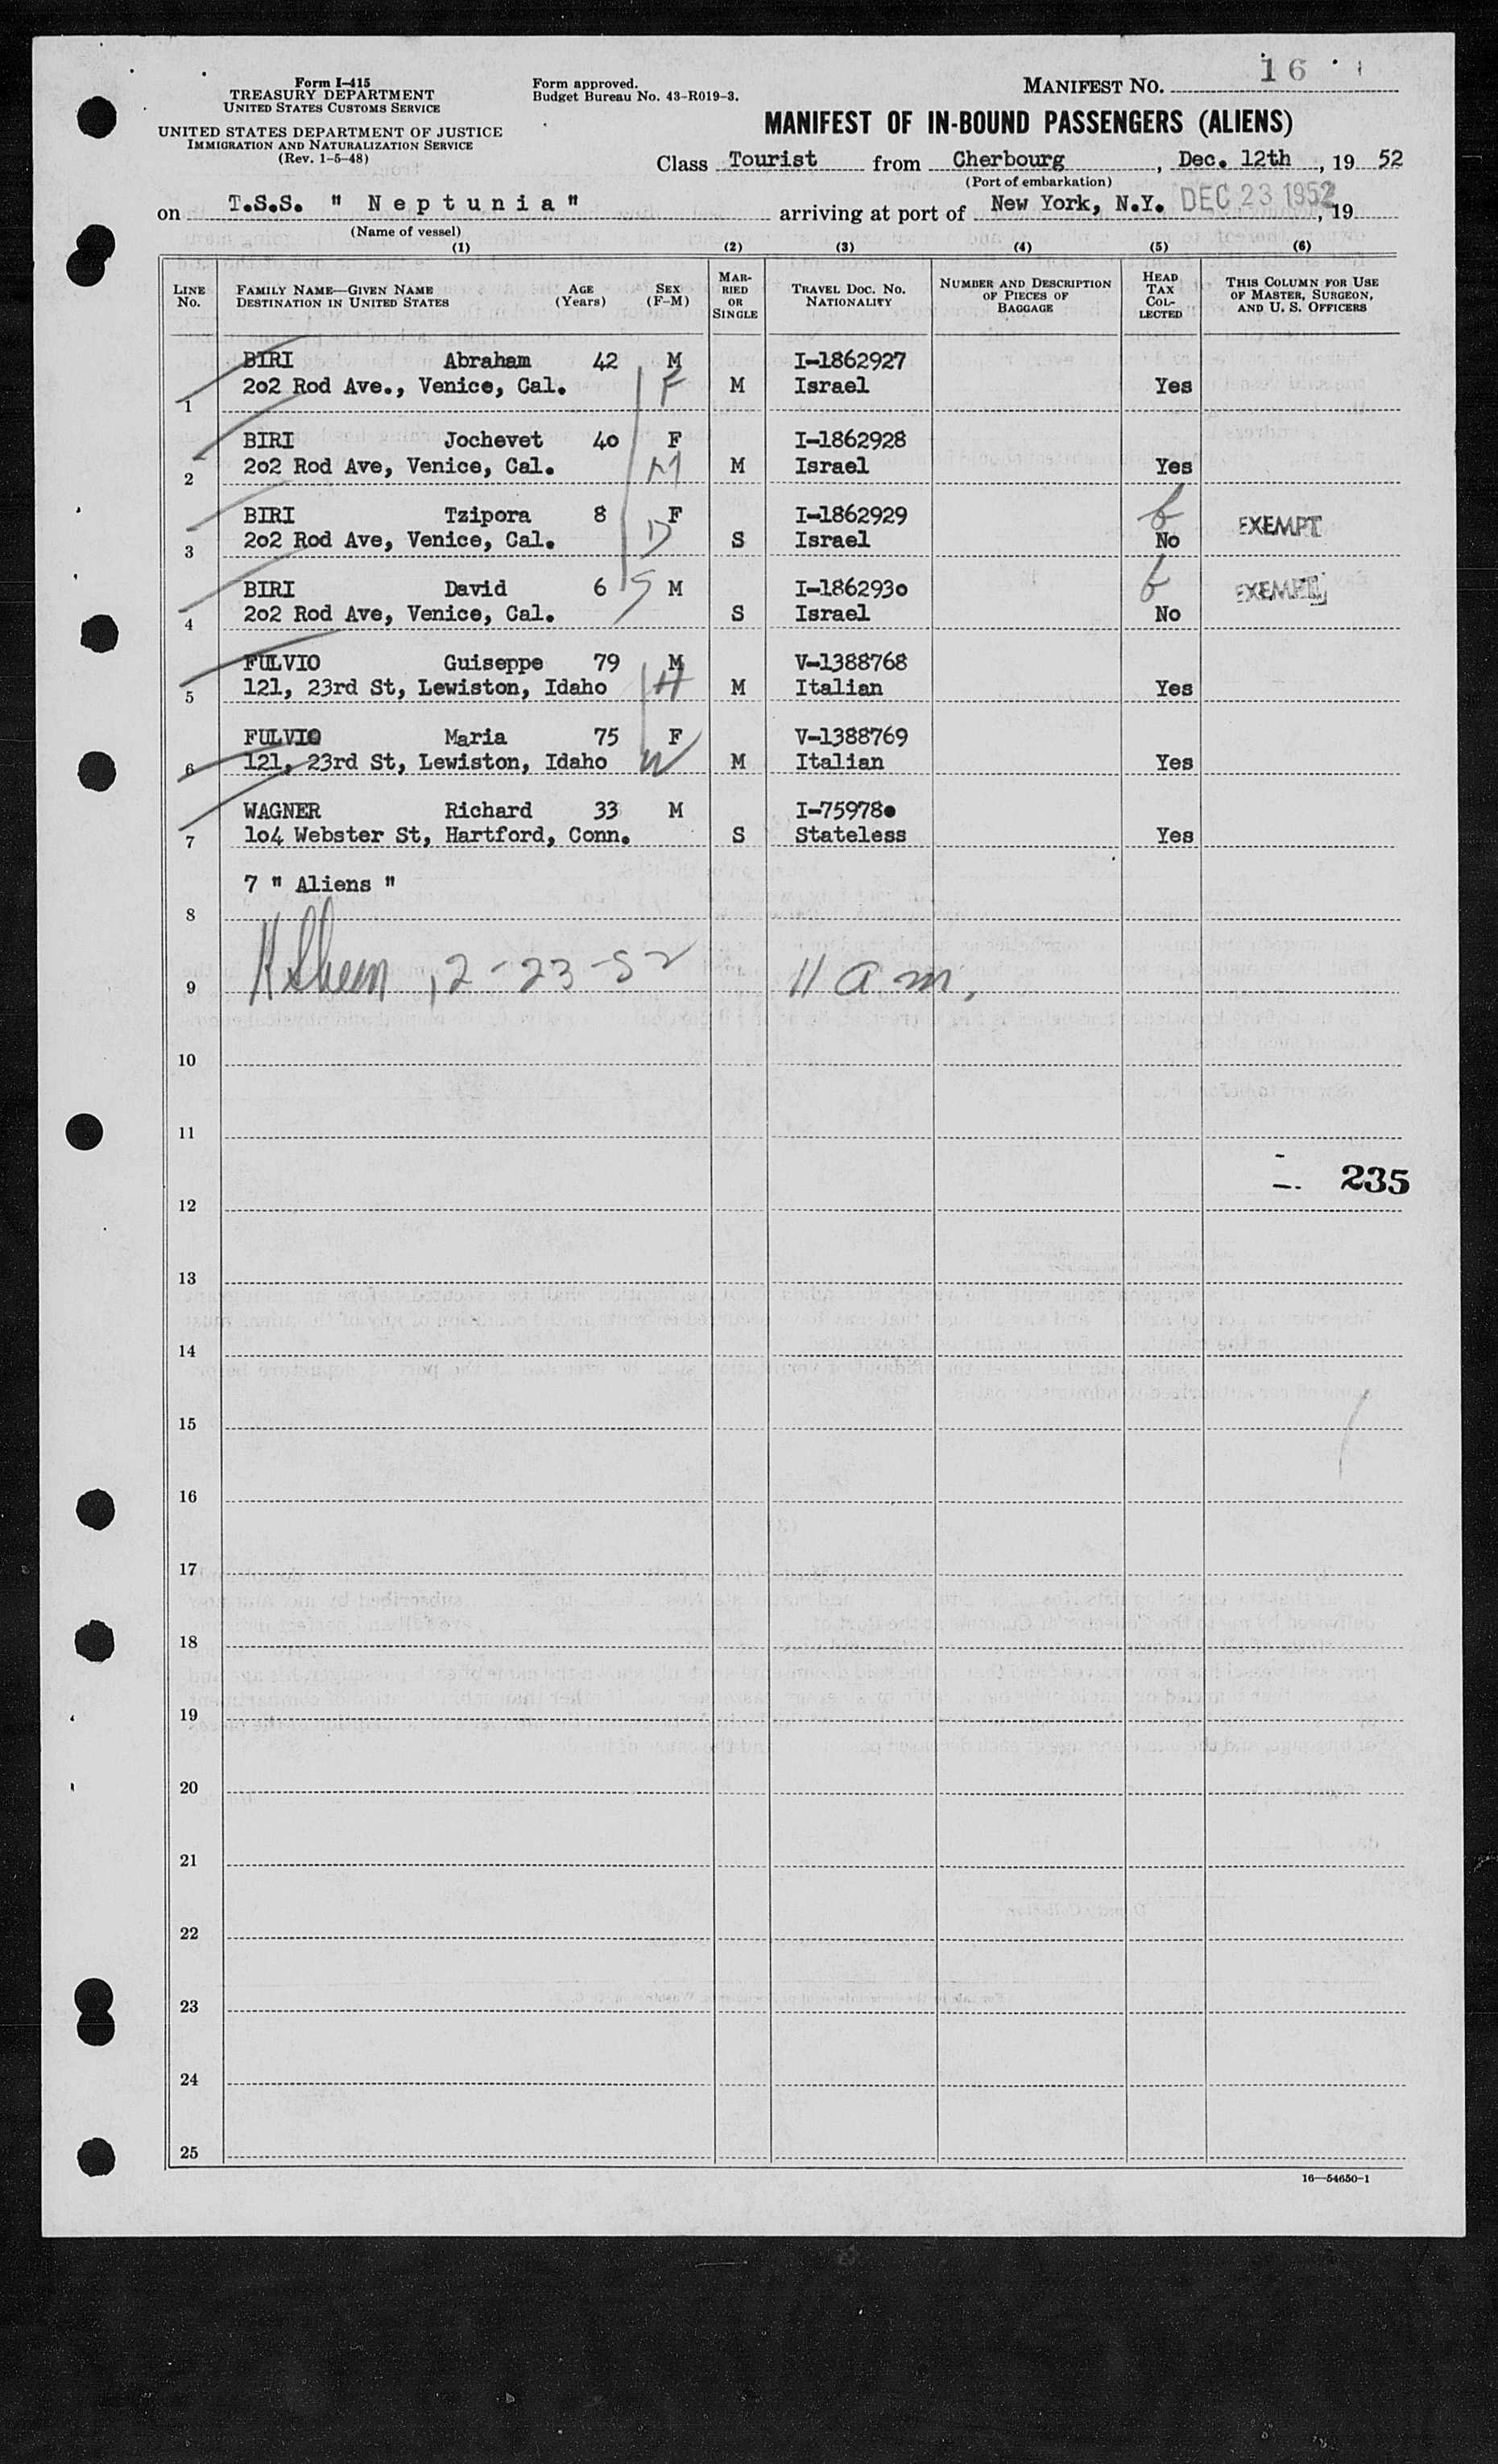 Form I-415
TREASURY DEPARTMENT
UNITED STATES CUSTOMS SERVICE
UNITED STATES DEPARTMENT OF JUSTICE
IMMIGRATION AND NATURALIZATION SERVICE
(Rev. 1-5-48)
Form approved.
Budget Bureau No. 43-R019-3.
MANIFEST NO. 16
MANIFEST OF IN-BOUND PASSENGERS (ALIENS)
Class Tourist from Cherbourg, Dec. 12th, 19 52
(Port of embarkation)
on T.S.S. " N e p t u n i a " arriving at port of New York, N.Y. DEC 23 1952, 19
(Name of vessel)
(1) (2) (3) (4) (5) (6)
LINE No. FAMILY NAME—GIVEN NAME DESTINATION IN UNITED STATES AGE (Years) SEX (F-M) MARRIED OR SINGLE TRAVEL DOC. NO. NATIONALITY NUMBER AND DESCRIPTION OF PIECES OF BAGGAGE HEAD TAX COLLECTED THIS COLUMN FOR USE OF MASTER, SURGEON, AND U. S. OFFICERS
BIRI Abraham 42 M I-1862927
1 202 Rod Ave., Venice, Cal. F M Israel Yes
BIRI Jochevet 40 F I-1862928
2 202 Rod Ave, Venice, Cal. M M Israel Yes
BIRI Tzipora 8 F I-1862929 EXEMPT
3 202 Rod Ave, Venice, Cal. D S Israel No
BIRI David 6 S M I-1862930 EXEMPT
4 202 Rod Ave, Venice, Cal. S Israel No
FULVIO Guiseppe 79 M V-1388768
5 121, 23rd St, Lewiston, Idaho H M Italian Yes
FULVIO Maria 75 F V-1388769
6 121, 23rd St, Lewiston, Idaho W M Italian Yes
WAGNER Richard 33 M I-759780
7 104 Webster St, Hartford, Conn. S Stateless Yes
7 " Aliens "
8
9 12-23-52 11 a m.
10
11
235
12
13
14
15
16
17
18
19
20
21
22
23
24
25
16—54650-1